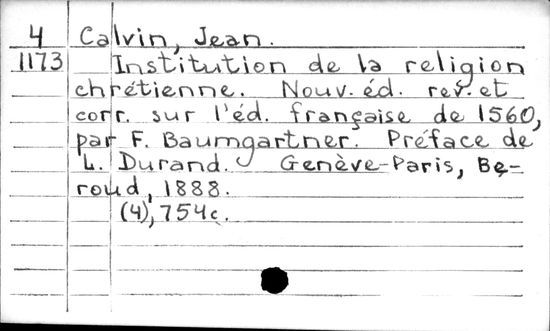 4 Calvin, Jean.
1173 Institution de la religion
chrétienne. Nouv. éd. rev. et
corr. sur l'éd. française de 1560,
par F. Baumgartner. Préface de
L. Durand. Genève-Paris, Be-
roud, 1888.
(4), 754c.